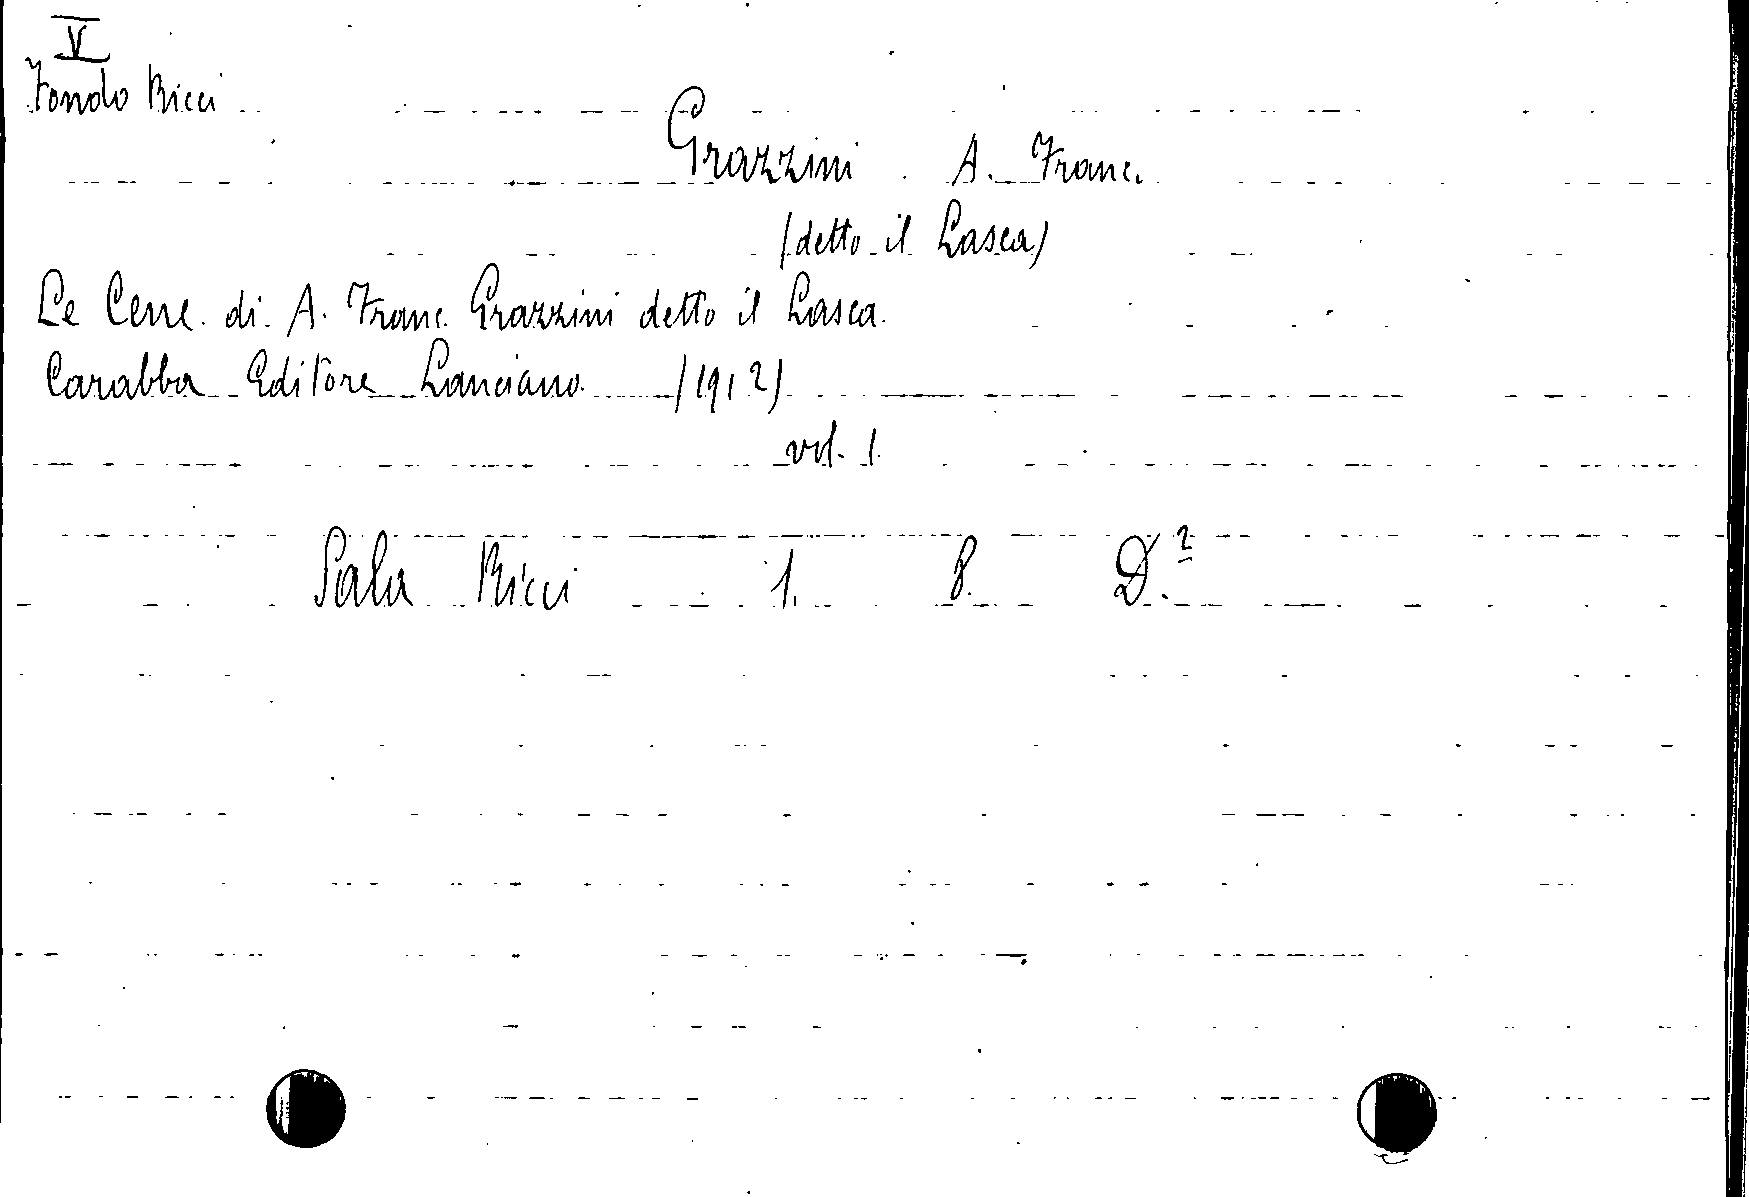 V
Fondo Ricci
Grazzini A. Franc.
(detto il Lasca)
Le Cene di A. Franc. Grazzini detto il Lasca.
Carabba Editore Lanciano (1912)
vol. 1.
Sala Ricci 1. 8. D.2